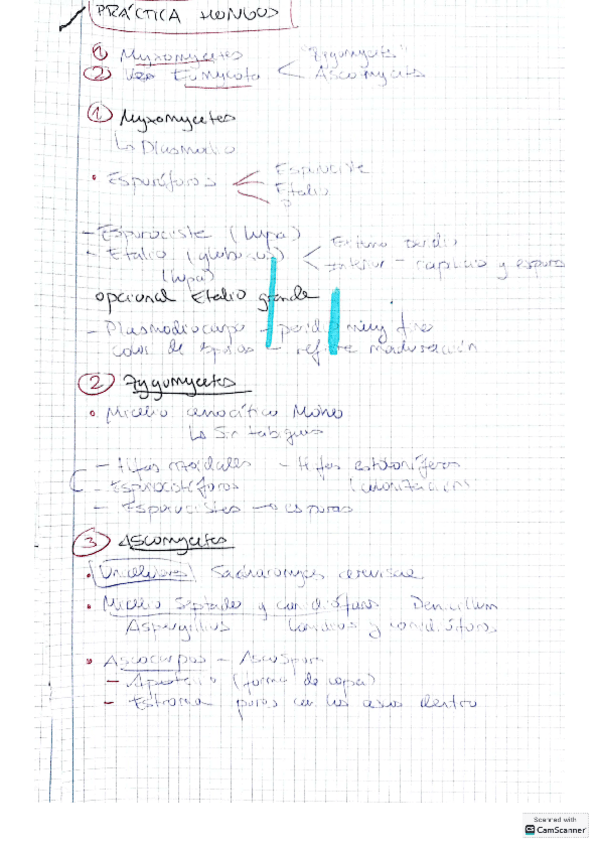 PRÁCTICA HONGOS
① Myxomycetes "Zygomycets"
② Eumycota < Ascomycets
① Myxomycetes
↳ Plasmodio
• Esporóforos < Esporociste
Etalio
?
- Esporociste (lupa)
- Etalio (globoso) < Externo
(lupa) Interior - capilicio y esporas
opcional Etalio grande
- Plasmodiocarpo - peridio muy fino
color de esporas - refiere maduración
② Zygomycetes
• Micelio cenocítico Moho
↳ Sin tabiques
- Hifas rizoidales - Hifas estoloníferas
- Esporocistóforos (colonización)
- Esporocistes → esporas
③ Ascomycetes
• Unicelulares Sacharomyces cerevisae
• Micelio septado y conidióforos Penicillium
Aspergillus Conidios y conidióforos
• Ascocarpos - Ascosporas
- Apotecio (forma de copa)
- Estroma poros con los ascos dentro
Scanned with
CS CamScanner